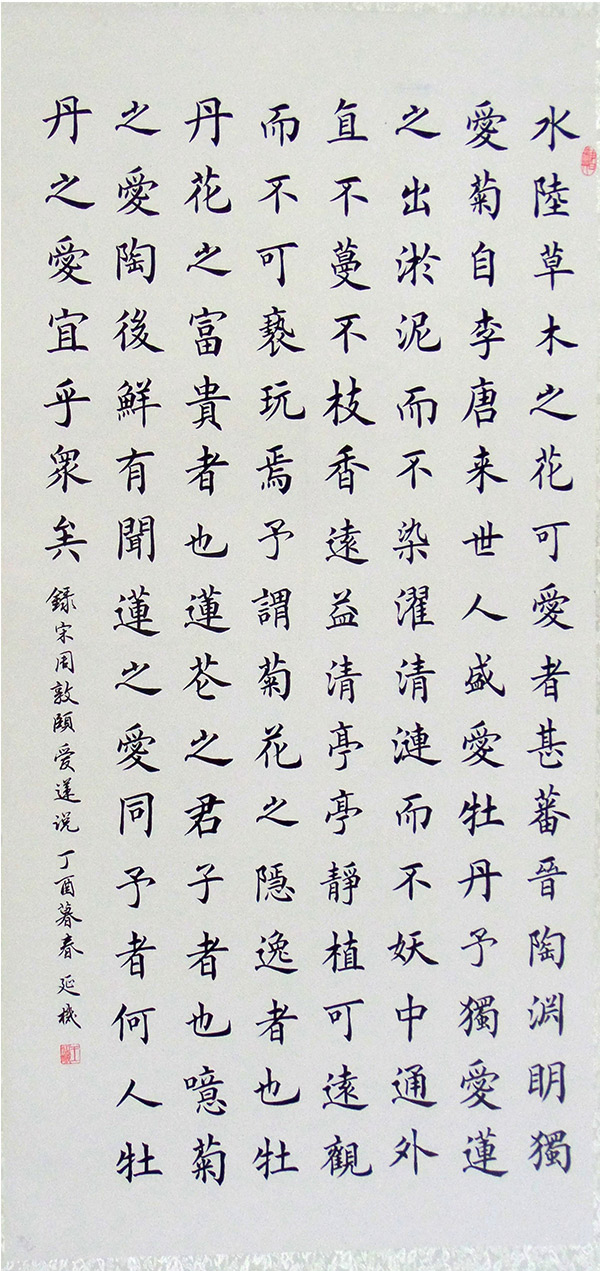 水陸草木之花可愛者甚蕃晉陶渊眀獨
愛菊自李唐来世人盛愛牡丹予獨愛蓮
之出淤泥而不染濯清漣而不妖中通外
直不蔓不枝香遠益清亭亭靜植可遠觀
而不可褻玩焉予謂菊花之隱逸者也牡
丹花之富貴者也蓮花之君子者也噫菊
之愛陶後鮮有聞蓮之愛同予者何人牡
丹之愛宜乎眾矣 録宋周敦頤爱莲说 丁酉暮春 延機